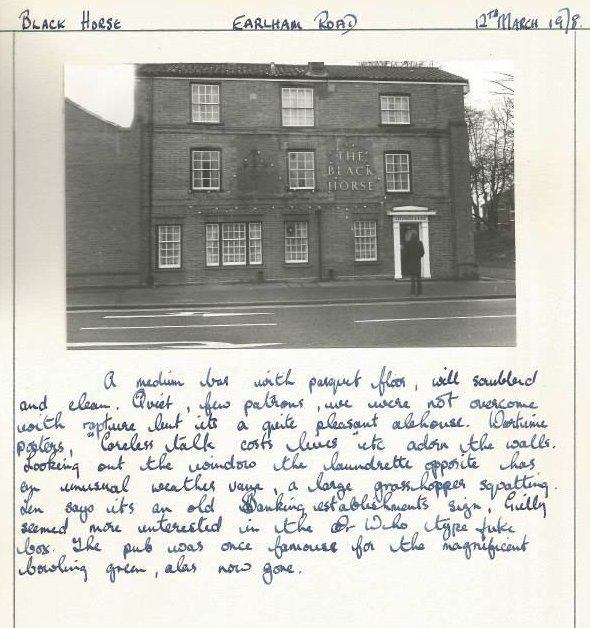 BLACK HORSE EARLHAM ROAD 12TH MARCH 1978.
THE
BLACK
HORSE
A medium bar with parquet floor, will scrubbed
and clean. Quiet, few patrons, we were not overcome
with rapture but its a quite pleasant alehouse. Wartime
posters, "Careless talk costs lives" etc adorn the walls.
Looking out the window the laundrette opposite has
an unusual weather vane, a large grasshopper squatting.
Len says its an old Banking establishments sign, Gilly
seemed more interested in the Dr Who type juke
box. The pub was once famous for the magnificent
bowling green, alas now gone.